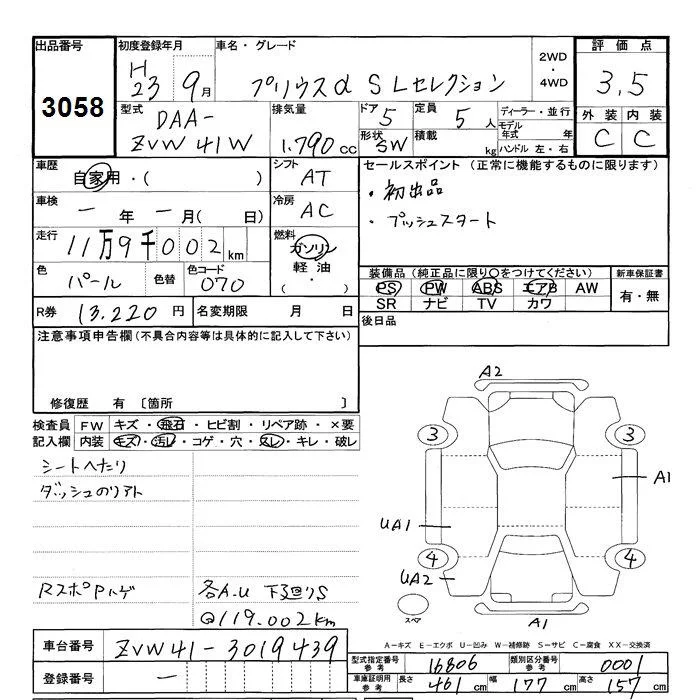 出品番号 初度登録年月 車名・グレード 評価点
3058 H23 9月 プリウスα SLセレクション 2WD・4WD 3.5
型式 排気量 ドア 5 定員 5人 ディーラー・並行 外装 内装
DAA-ZVW41W 1.790cc 形状 SW 積載 kg モデル年式 年 ハンドル 左・右 C C
車歴 自家用・( ) シフト AT セールスポイント(正常に機能するものに限ります)
車検 ー年ー月(日) 冷房 AC ・初出品
走行 11万9千002km 燃料 ガソリン 軽油 (・) ・プッシュスタート
色 パール 色替 色コード 070 装備品(純正品に限り○をつけてください) 新車保証書
PS PW ABS エアB AW 有・無
SR ナビ TV カワ
R券 13.220円 名変期限 月 日 後日品
注意事項申告欄(不具合内容等は具体的に記入して下さい)
修復歴 有 〔箇所 〕
検査員 FW キズ・飛石・ヒビ割・リペア跡・×要
記入欄 内装 キズ・汚レ・コゲ・穴・スレ・キレ・破レ
シートヘタリ
ダッシュのリアト
RスポPハゲ 各A.U 下廻りS
@119.002km
A2
3 3
A1
UA1
4 4
UA2
スペア
A1
A-キズ E-エクボ U-凹み W-補修跡 S-サビ C-腐食 XX-交換済
車台番号 ZVW41-3019439
型式指定番号 参考 16806 類別区分番号 参考 0001
登録番号 ー
車庫証明用 参考 長さ 461cm 幅 177cm 高さ 157cm